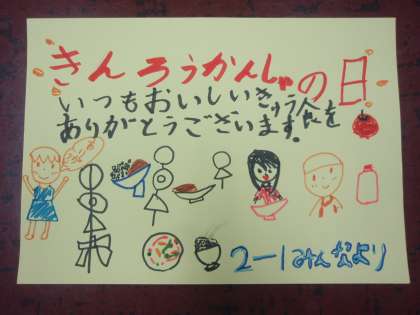 きんろうかんしゃの日
いつもおいしいきゅう食を
ありがとうございます。
2-1みんなより